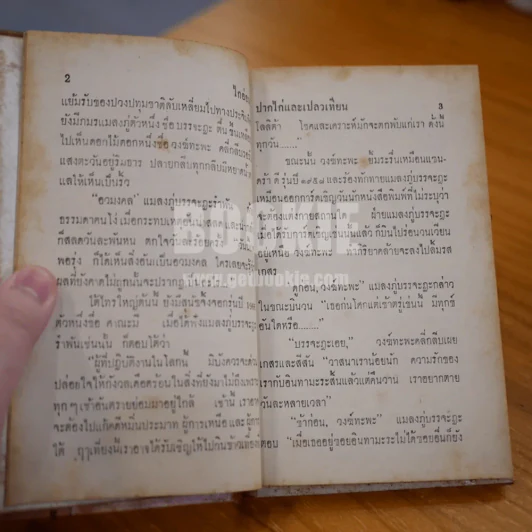 2
แย้มรับของปวงปทุมชาติลับเหลี่ยมไปทาง
ยังมีภมรแมลงภู่ตัวหนึ่ง ชื่อ บรรจะฎะ ตื่น
ไปเห็นดอกไม้ดอกหนึ่งชื่อ วงษ์ทะพะ คลี่กลีบ
แสงตะวันอยู่ริมธาร ปลายกลีบทุกกลีบ
แลให้เห็นเป็นรั้ว
"อวมงคล" แมลงภู่บรรจะฎะ
ธรรมดาคนไง่ เมื่อกระทบเหตุ
กี่สลดวันละพันหน ตกใจวันละร้อยครั้ง
พอรุ่ง ก็ได้เห็นสิ่งอันเป็นอวมงคล ใครเลยจะ
ผลที่ยังคาดไม่ถูกนั้นจะปรากฏ
ใต้ไทรใหญ่ต้นนั้น ยังมีสนัขจิ้งจอกรุ่นปี
ตัวหนึ่งชื่อ คาณะมี เมื่อได้ฟังแมลงภู่บรรจะฎะ
รำพันเช่นนั้น ก็ตอบได้ว่า
"ผู้ที่ปฏิบัติงานในโลกนี้ มีบังควรจะ
ปล่อยใจให้กังวลเดือดร้อนในสิ่งที่ยังมาไม่ถึง
ทุก ๆ เช้าอันตรายย่อมมาอยู่ใกล้ เช้านี้เรา
ต้องไปแก้คดีหมิ่นประมาท ผู้การเหนือ และ
ใต้ ฤๅเที่ยงนี้เราอาจได้รับเชิญให้ไปกินข้าว
ปากไก่และเปลวเทียน
3
โลลิต้า โชคและเคราะห์มักจะตกพับแก่เรา ดั่งนี้
ทุกวัน......"
ขณะนั้น วงษ์ทะพะ ยิ้มระรื่นเหมือนแซน-
ดร้า ดี รุ่นปี ๑๙๕๘ และร้องทักทายแมลงภู่บรรจะฎะ
เหมือนออกการ์ดเชิญวันนักหนังสือพิมพ์ที่ไม่ระบุว่า
จะต้องแต่งกายสถานใด ฝ่ายแมลงภู่บรรจะฎะ
เมื่อได้รับการ์ดเชิญเช่นนั้นแล้ว ก็บินไปร่อนวนเวียน
เหนือวงษ์ทะพะ ทำกิริยาคล้ายจะลงไปลิ้มรส
เกสร
"ดูก่อน, วงษ์ทะพะ" แมลงภู่บรรจะฎะกล่าว
ในขณะบินวน "เธอก่นโศกแต่เช้าตรู่เช่นนี้ มีทุกข์
อันใดหรือ........"
"บรรจะฎะเอย," วงษ์ทะพะคลี่กลีบเผย
เกสรและสีสัน "วาสนาเรานี้น้อยนัก ความรักของ
เรากับอินทามะระสั้นแล้วแต่คืนวาน เราอยากตาย
วันละหลายเวลา"
"ช้าก่อน, วงษ์ทะพะ" แมลงภู่บรรจะฎะ
ตอบ "เมื่อเธออยู่ซอยอินทามะระไม่ได้ซอยอื่นก็ยัง
GEBOOKIE
www.getbookie.com